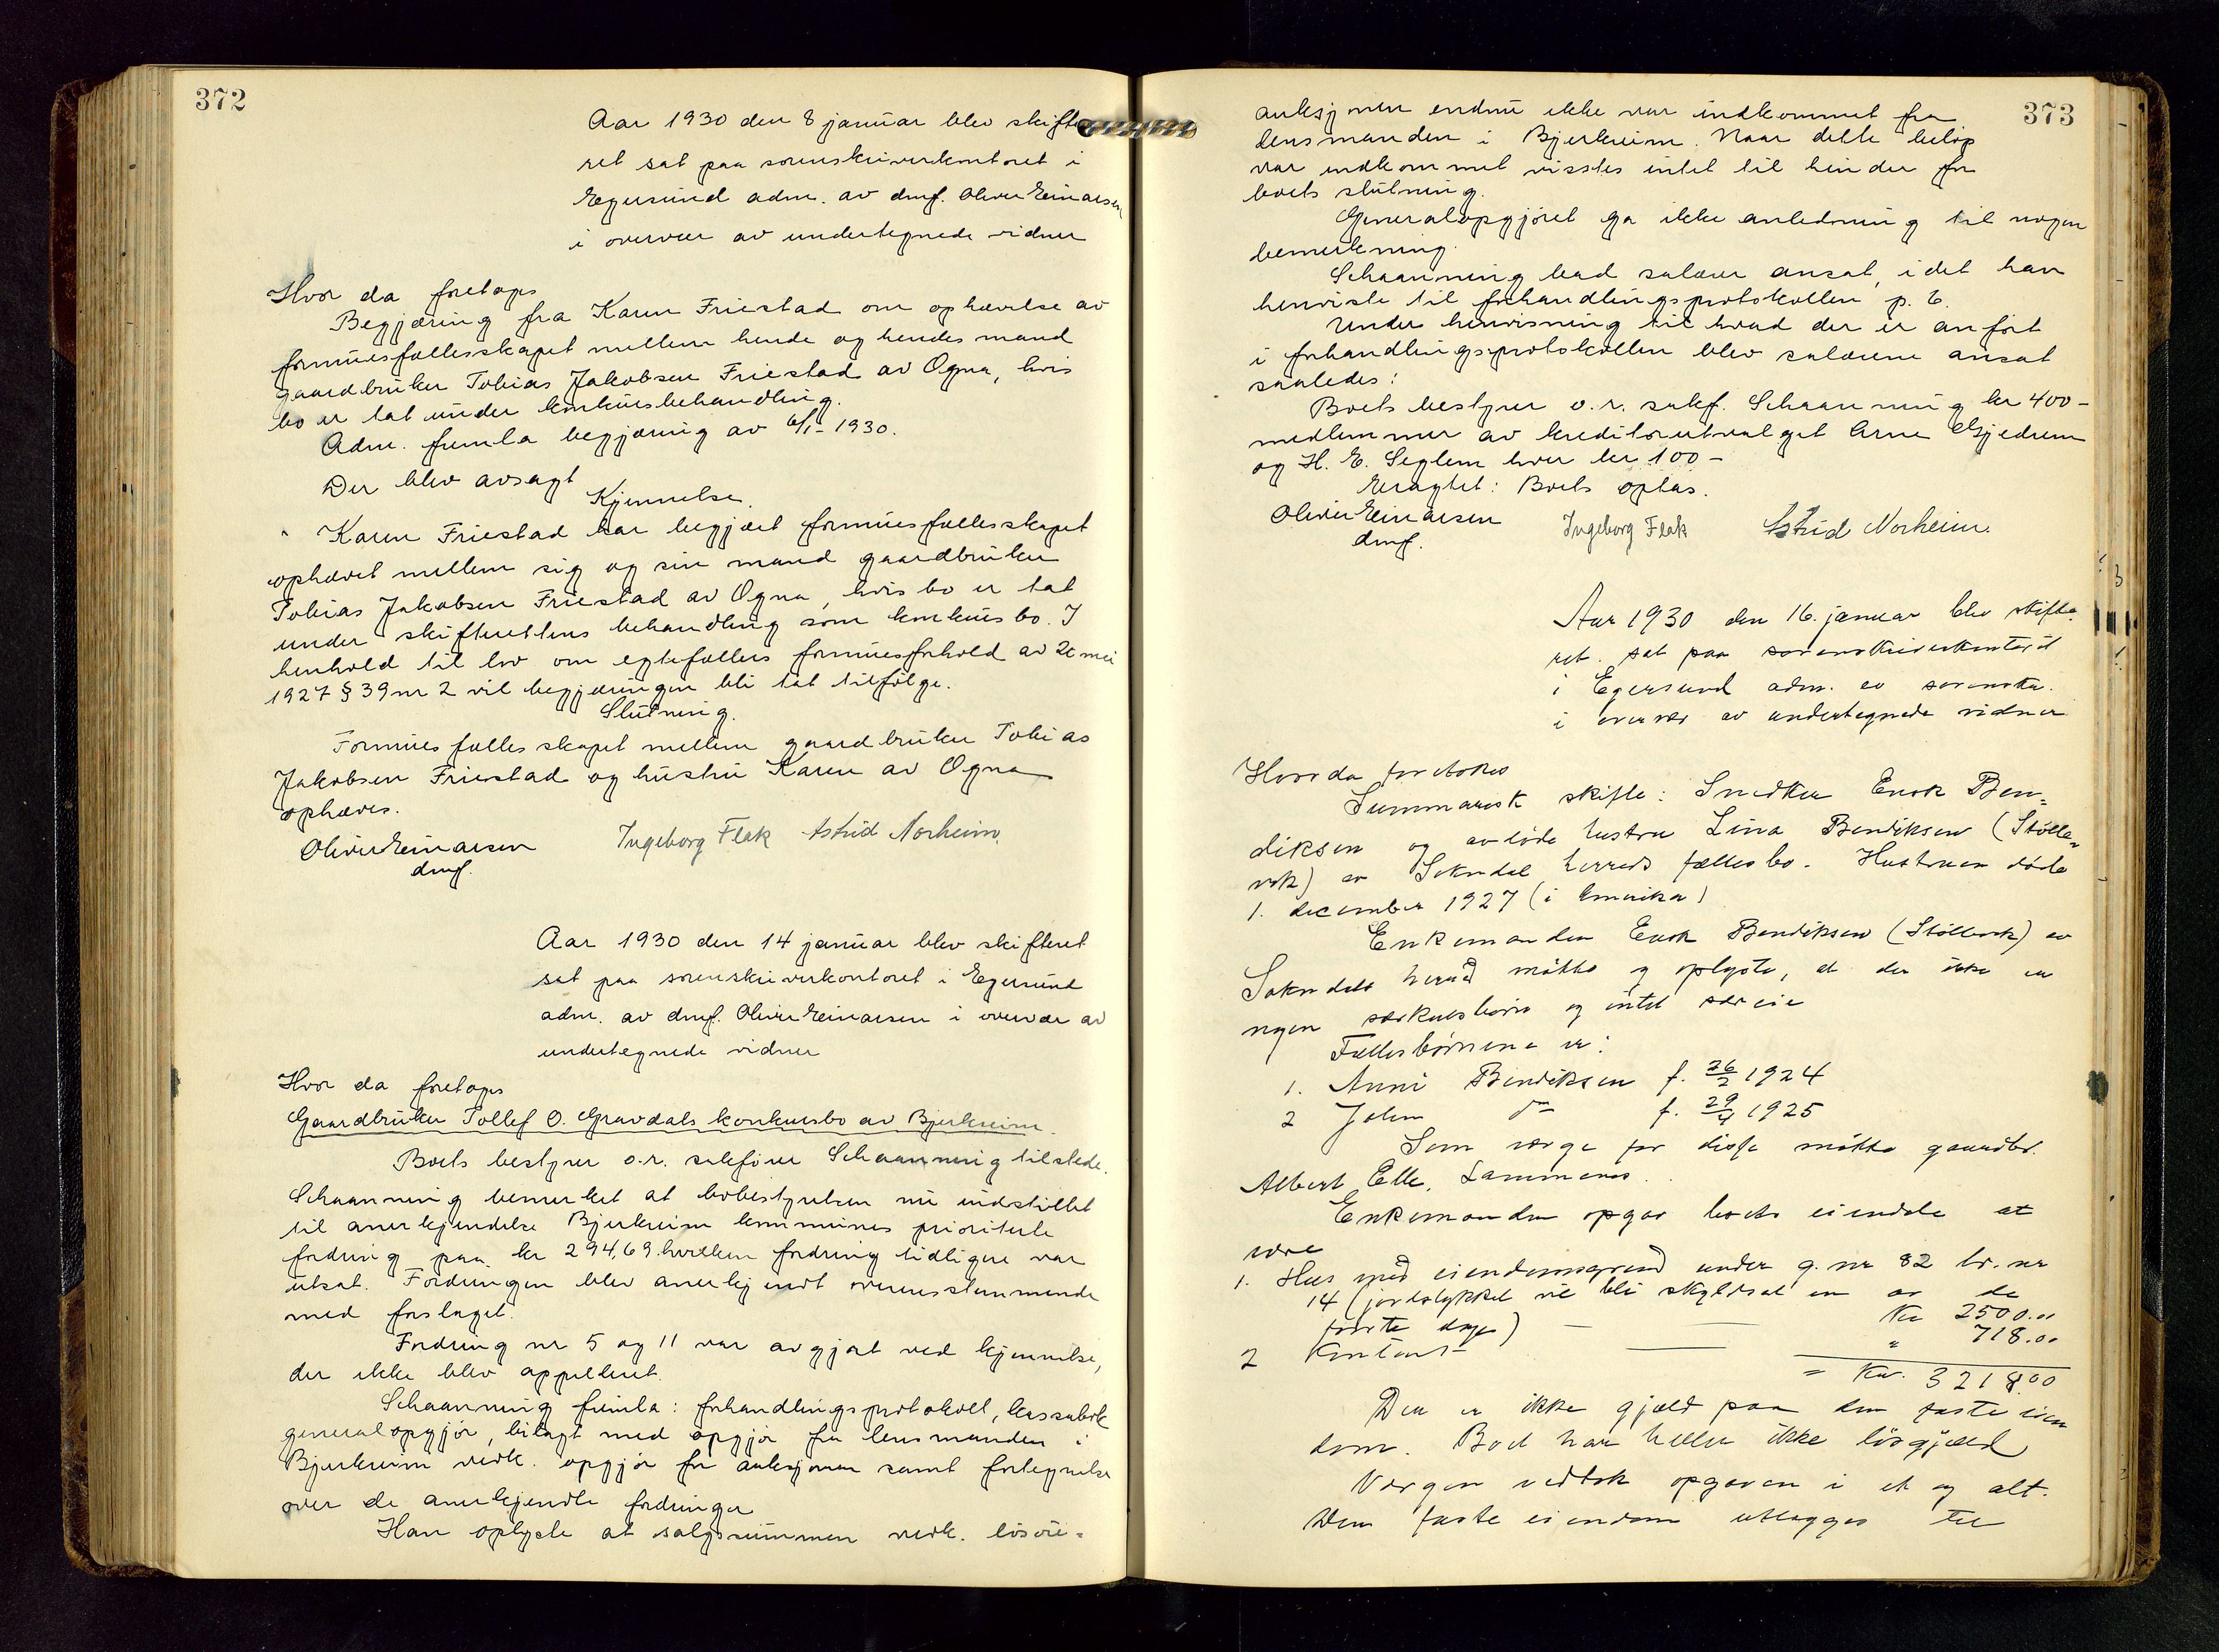 372
Aar 1930 den 8 januar blev skifte
ret sat paa sorenskriverkontoret i
Egersund adm. av dmf. Oliver Einarsen
i overvær av undertegnede vidner
Hvor da foretoges
Begjæring fra Karen Friestad om ophævelse av
formuesfællesskapet mellem hende og hendes mand
gaardbruker Tobias Jakobsen Friestad av Ogna, hvis
bo er tat under konkursbehandling.
Adm. fremla begjæring av 6/1-1930.
Der blev avsagt
Kjennelse
Karen Friestad har begjært formuesfællesskapet
ophævet mellem sig og sin mand gaardbruker
Tobias Jakobsen Friestad av Ogna, hvis bo er tat
under skifterettens behandling som konkursbo. I
henhold til lov om egtefællers formuesforhold av 20 mai
1927 § 39 nr 2 vil begjæringen bli tat tilfølge.
Slutning.
Formuesfællesskapet mellem gaardbruker Tobias
Jakobsen Friestad og hustru Karen av Ogna
ophæves.
Oliver Einarsen Ingeborg Flak Astrid Norheim.
dmf.
Aar 1930 den 14 januar blev skifteret
sat paa sorenskriverkontoret i Egersund
adm. av dmf. Oliver Einarsen i overvær av
undertegnede vidner
Hvor da foretoges
Gaardbruker Tollef O. Gravdals konkursbo av Bjerkreim.
Boets bestyrer o.r. sakfører Schaanning tilstede.
Schaanning bemerket at bobestyrelsen nu indstillet
til anerkjendelse Bjerkreim kommunes prioriterte
fordring paa kr 294,69. hvilken fordring tidligere var
utsat. Fordringen blev anerkjendt overensstemmende
med forslaget.
Fordring nr 5 og 11 var avgjort ved kjennelse,
der ikke blev appelleret.
Schaanning fremla: forhandlingsprotokoll, kassabok
generalopgjør, bilagt med opgjør fra lensmanden i
Bjerkreim vedk. opgjør for auksjonen samt fortegnelse
over de anerkjendte fordringer
Han oplyste at salgssummen vedk. løsøre-
373
auksjonen endnu ikke var indkommet fra
lensmanden i Bjerkreim. Naar dette beløp
var indkommet visstes intet til hinder for
boets slutning.
Generalopgjøret ga ikke anledning til nogen
bemerkning.
Schaanning bad salærer ansat, idet han
henviste til forhandlingsprotokollen p. 6.
Under henvisning til hvad der er anført
i forhandlingsprotokollen blev salærene ansat
saaledes:
Boets bestyrer o.r. sakf. Schaanning kr 400-
medlemmer av kreditorutvalget Arne Gjedrem
og H. E. Seglem hver kr 100-
Eragtet: Boets optas.
Oliver Einarsen Ingeborg Flak Astrid Norheim.
dmf.
Aar 1930 den 16. januar blev skifte
ret. sat paa sorenskriverkontoret
i Egersund adm. av sorenskr.
i overvær av undertegnede vidner
Hvor da foretokes
Summarisk skifte: Snedker Enok Ben-
diksen og avdøde hustru Lina Bendiksen (Stølle-
vik) av Sokndal herreds fællesbo. Hustruen døde
1. december 1927 (i Amerika)
Enkemanden Enok Bendiksen (Støllevik) av
Sokndals herred møtte og oplyste, at der ikke er
nogen særkuldsbørn og intet særeie
Fællesbørnene er:
1. Anni Bendiksen f. 26/2 1924
2 John do f. 29/4 1925
Som verge for disse møtte gaardbr.
Albert Elle,
Enkemanden opgav boets eiendele at
være
1. Hus med eiendomsgrund under g. nr 82 br. nr
14 (jordstykket vil bli skyldsat en av de
første dage) — — Kr 2500.00
2 Kontant — " 718.00
= Kr. 3218.00
Der er ikke gjæld paa den faste eien
dom. Boet har heller ikke løsgjæld
Vergen vedtok opgaven i et og alt.
Den faste eiendom utlægges til